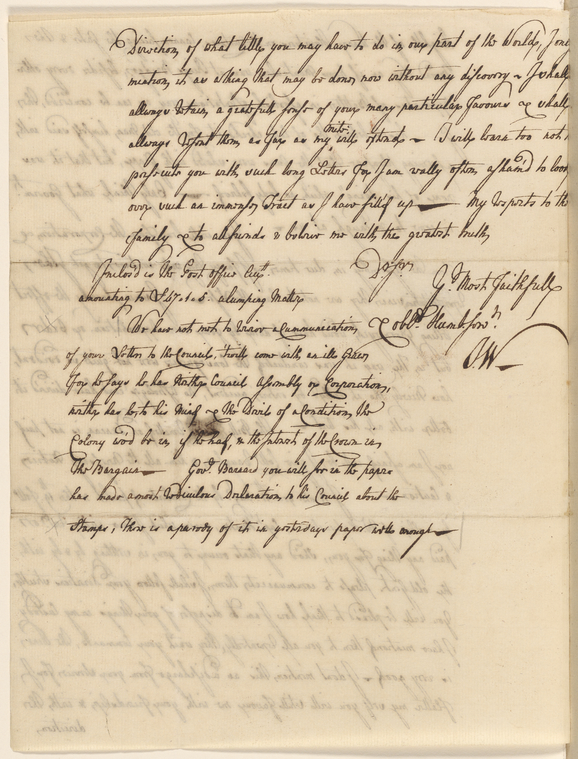 Direction, of what little you may have to do in our part of the World, I one
mention, it as a thing that may be done, now without any discovery & I shall
allways retain, a gratefull sense of your many particular Favours & shall
allways resent them as far as my write will extend — I will learn too not
persecute you with, such long Letters for I am really often, ashamd to look
over such an immense, Tract as I have filled up — My Respects to the
family & to all friends & believe me with, the greatest truth,
Dr Sr.
Yr. Most Faithfull
& obt. Humb. Servt.
J.W—
Inclosd is the Post office Acct.
amounting to a lumping Matter
We have not met to Viriow a Communication,
of your Letters to the Council, twill come with an ill Grace
for he says he has neither Council Assembly or Corporation,
neither has he to his Mind & the Devil of a Condition, the
Colony wo'd be in, if he had, & the Interest of the Crown in
the Bargain — Govr. Barnard you will see in the papers
has made a most rediculous Declaration, to his Council about the
Stamps, There is a parody of it in yesterdays paper well enough —